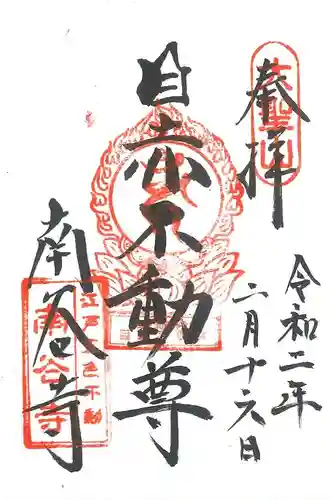 奉拝
令和二年
二月十六日
目赤不動尊
南谷寺
江戸五色不動
南谷寺